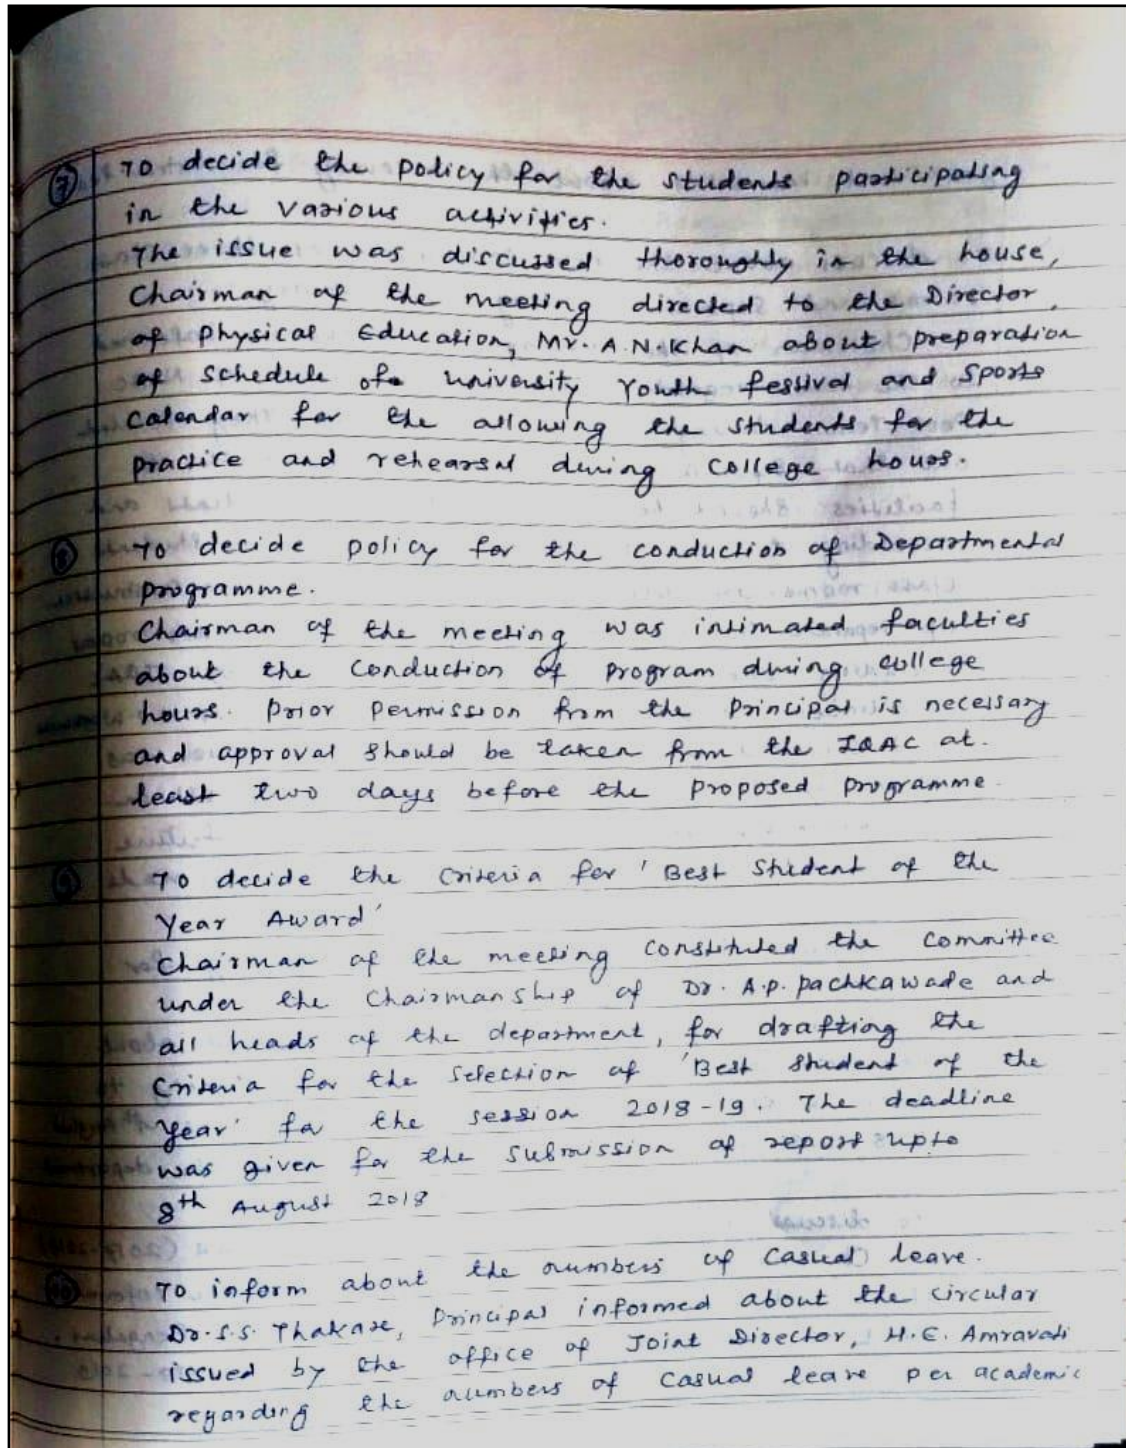 ⑦ To decide the policy for the students participating
in the various activities.
The issue was discussed thoroughly in the house,
Chairman of the meeting directed to the Director
of Physical Education, Mr. A.N. Khan about preparation
of schedule of University Youth festival and Sports
Calendar for the allowing the students for the
practice and rehearsal during college hours.
⑧ To decide policy for the conduction of Departmental
programme.
Chairman of the meeting was intimated faculties
about the conduction of program during college
hours. Prior permission from the Principal is necessary
and approval should be taken from the IQAC at
least two days before the proposed programme.
⑨ To decide the criteria for 'Best Student of the
Year Award'
Chairman of the meeting constituted the committee
under the Chairmanship of Dr. A.P. Pachkawade and
all heads of the department, for drafting the
criteria for the selection of 'Best student of the
year' for the session 2018-19. The deadline
was given for the submission of report upto
8th August 2018
⑩ To inform about the numbers of casual leave.
Dr. S.S. Thakare, Principal informed about the circular
issued by the office of Joint Director, H.E. Amravati
regarding the numbers of casual leave per academic